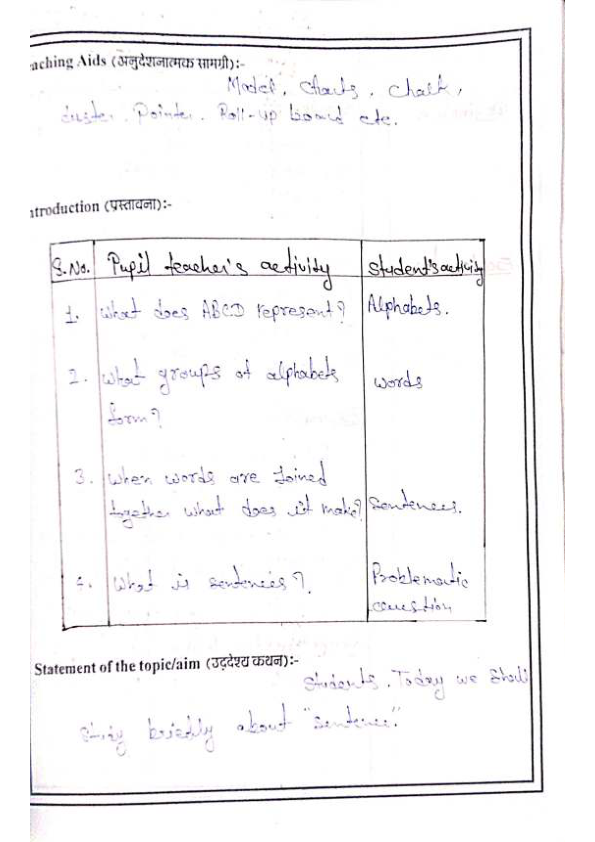 aching Aids (अनुदेशनात्मक सामग्री):-
Model, charts, chalk,
duster, Pointer, Roll-up board etc.
ntroduction (प्रस्तावना):-
S.No. Pupil teacher's activity Student's activity
1. What does ABCD represent? Alphabets.
2. What groups of alphabets words
form?
3. When words are Joined
together what does it make? Sentences.
4. What is sentences?. Problematic
question
Statement of the topic/aim (उद्देश्य कथन):-
Students, Today we Shall
Study briefly about "sentence".